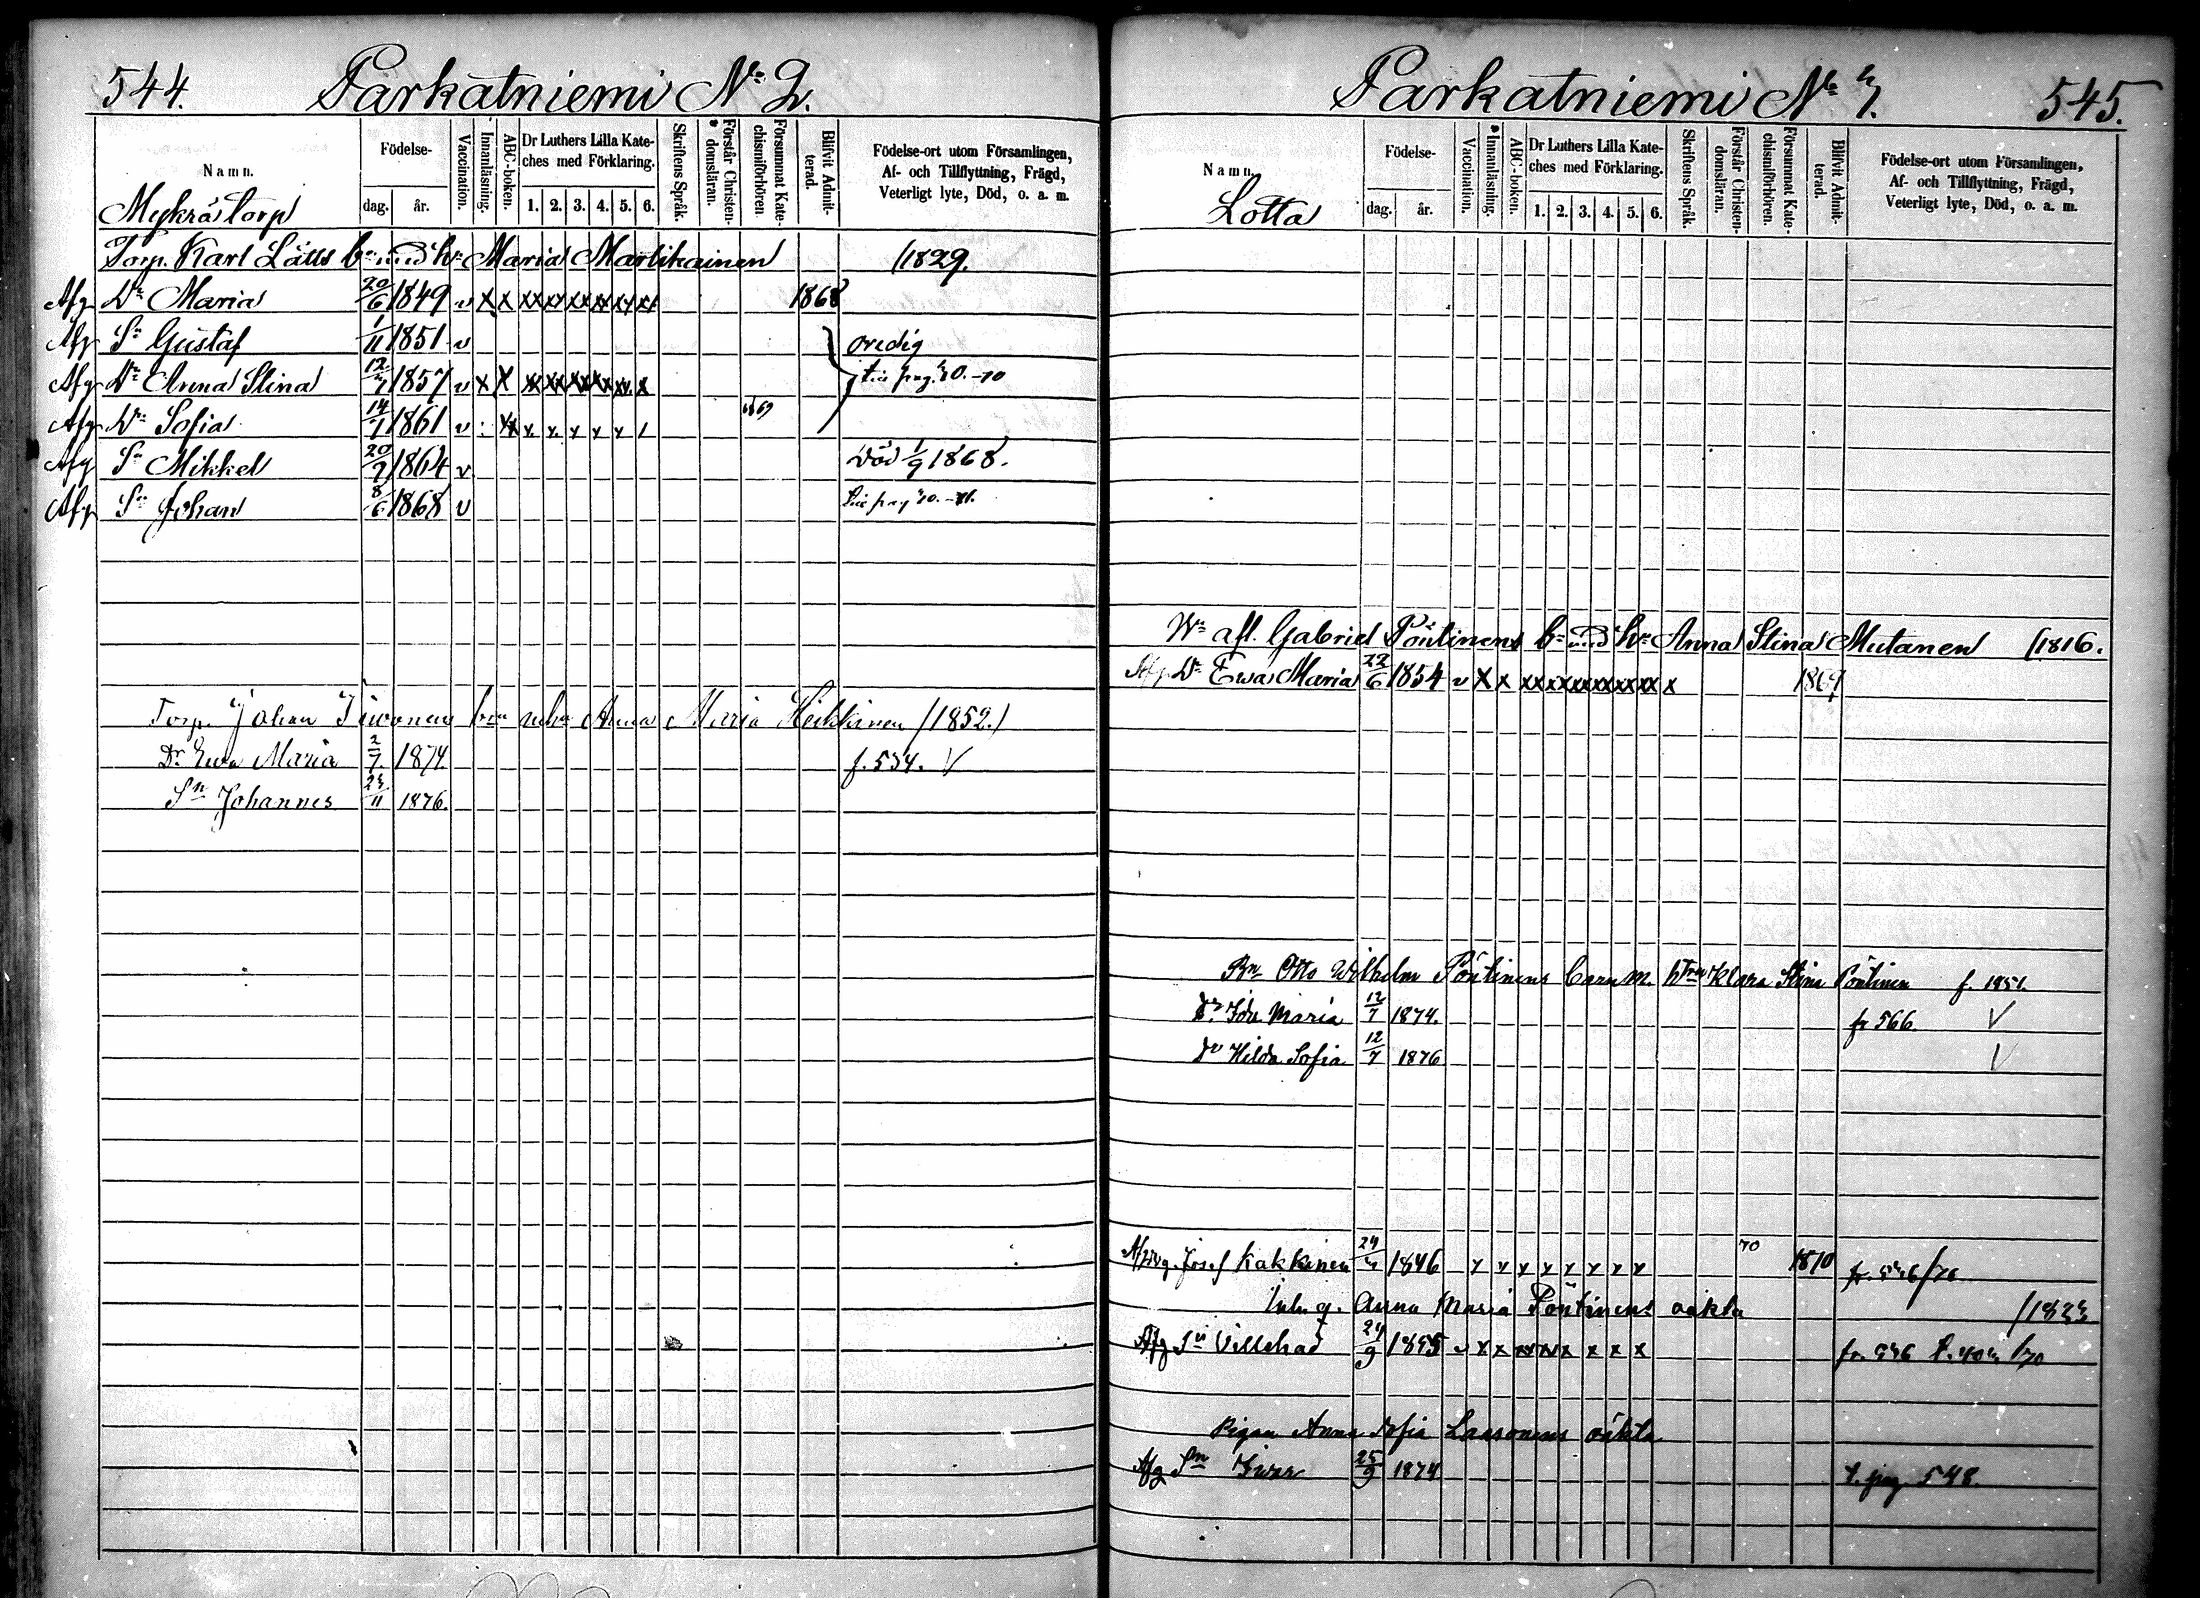 544. Parkatniemi No 2.
Namn.
Födelse-
dag.
år.
Vaccination.
Innanläsning.
ABC-boken.
Dr Luthers Lilla Kate-
ches med Förklaring.
1. 2. 3. 4. 5. 6.
Skriftens Språk.
Förstår Christen-
domsläran.
Försummat Kate-
chismiförhören.
Blifvit Admit-
terad.
Födelse-ort utom Församlingen,
Af- och Tillflyttning, Frägd,
Veterligt lyte, Död, o. a. m.
Mykrästorp
Torp. Karl Lätts bn med hn Maria Martikainen /1829.
Afg Dr Maria 20/6 1849 v x x xx xx xx xx xx xx 1868
Afg Sn Gustaf 1/11 1851 v oredig
Afg Dr Anna Stina 12/7 1857 v x x xx xx xx xx xx x
Afg Dr Sofia 14/7 1861 v
Afg Sn Mikkel 20/9 1864 v Död 1/9 1868.
Afg Sn Johan 8/6 1868 v
Torp. Johan Anna Maria Heikkinen /1852.)
Dr Ewa Maria 2/7 1874 f. 534. V
Sn Johannes 11 1876.
Parkatniemi No 545.
Namn.
Födelse-
dag.
år.
Vaccination.
Innanläsning.
ABC-boken.
Dr Luthers Lilla Kate-
ches med Förklaring.
1. 2. 3. 4. 5. 6.
Skriftens Språk.
Förstår Christen-
domsläran.
Försummat Kate-
chismiförhören.
Blifvit Admit-
terad.
Födelse-ort utom Församlingen,
Af- och Tillflyttning, Frägd,
Veterligt lyte, Död, o. a. m.
Lotta
afl. Gabriel Pöntinens bn med hn Anna Stina Mutanen /1816.
Afg Dr Ewa Maria 22/6 1854 v x x xx xx xx xx xx xx x 1869
Bn Otto Wilhelm Pöntinens barn m. Klara Stina Pöntinen f. 1851.
Dr Ida Maria 12/7 1874. fr 566. V
Dr Hilda Sofia 12/7 1876 V
Josef Kakkinen 1846 x x x x x x x x 70 1870
Anna Maria Pöntinens oäkta
Afg Sn Villehad 24/9 1855 v x x xx xx x x x x
Pigan Anna Sofia Laasonens oäkta
Afg Sn Iwar 25/9 1874 t. pag 548.